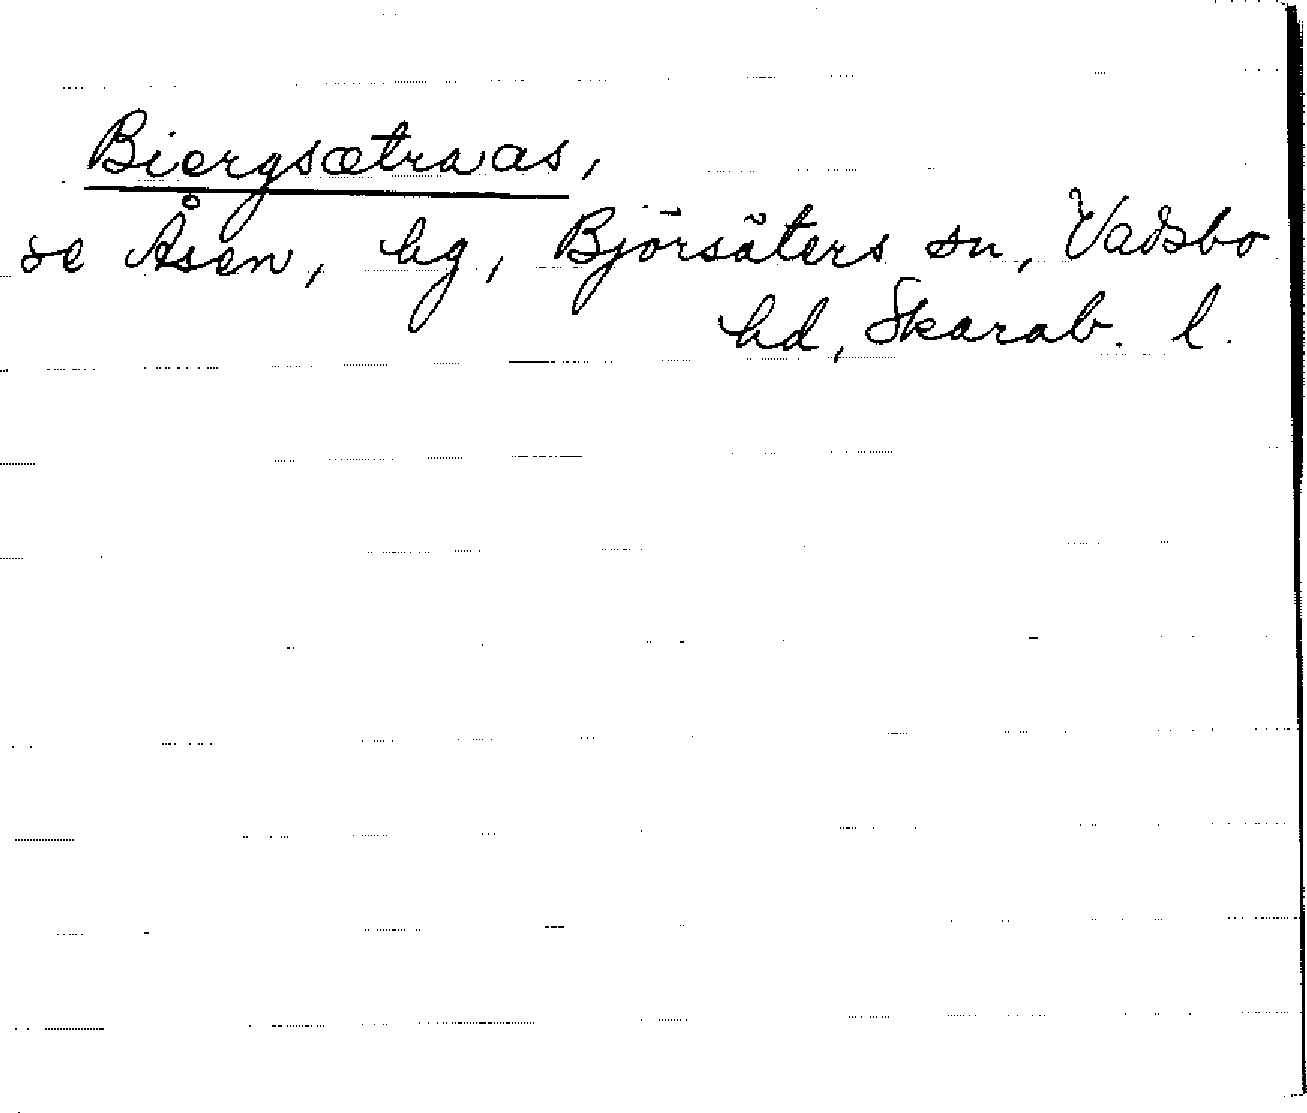 Biergsætraas,
se Åsen, hg, Björsäters sn, Vadsbo
hd, Skarab. l.